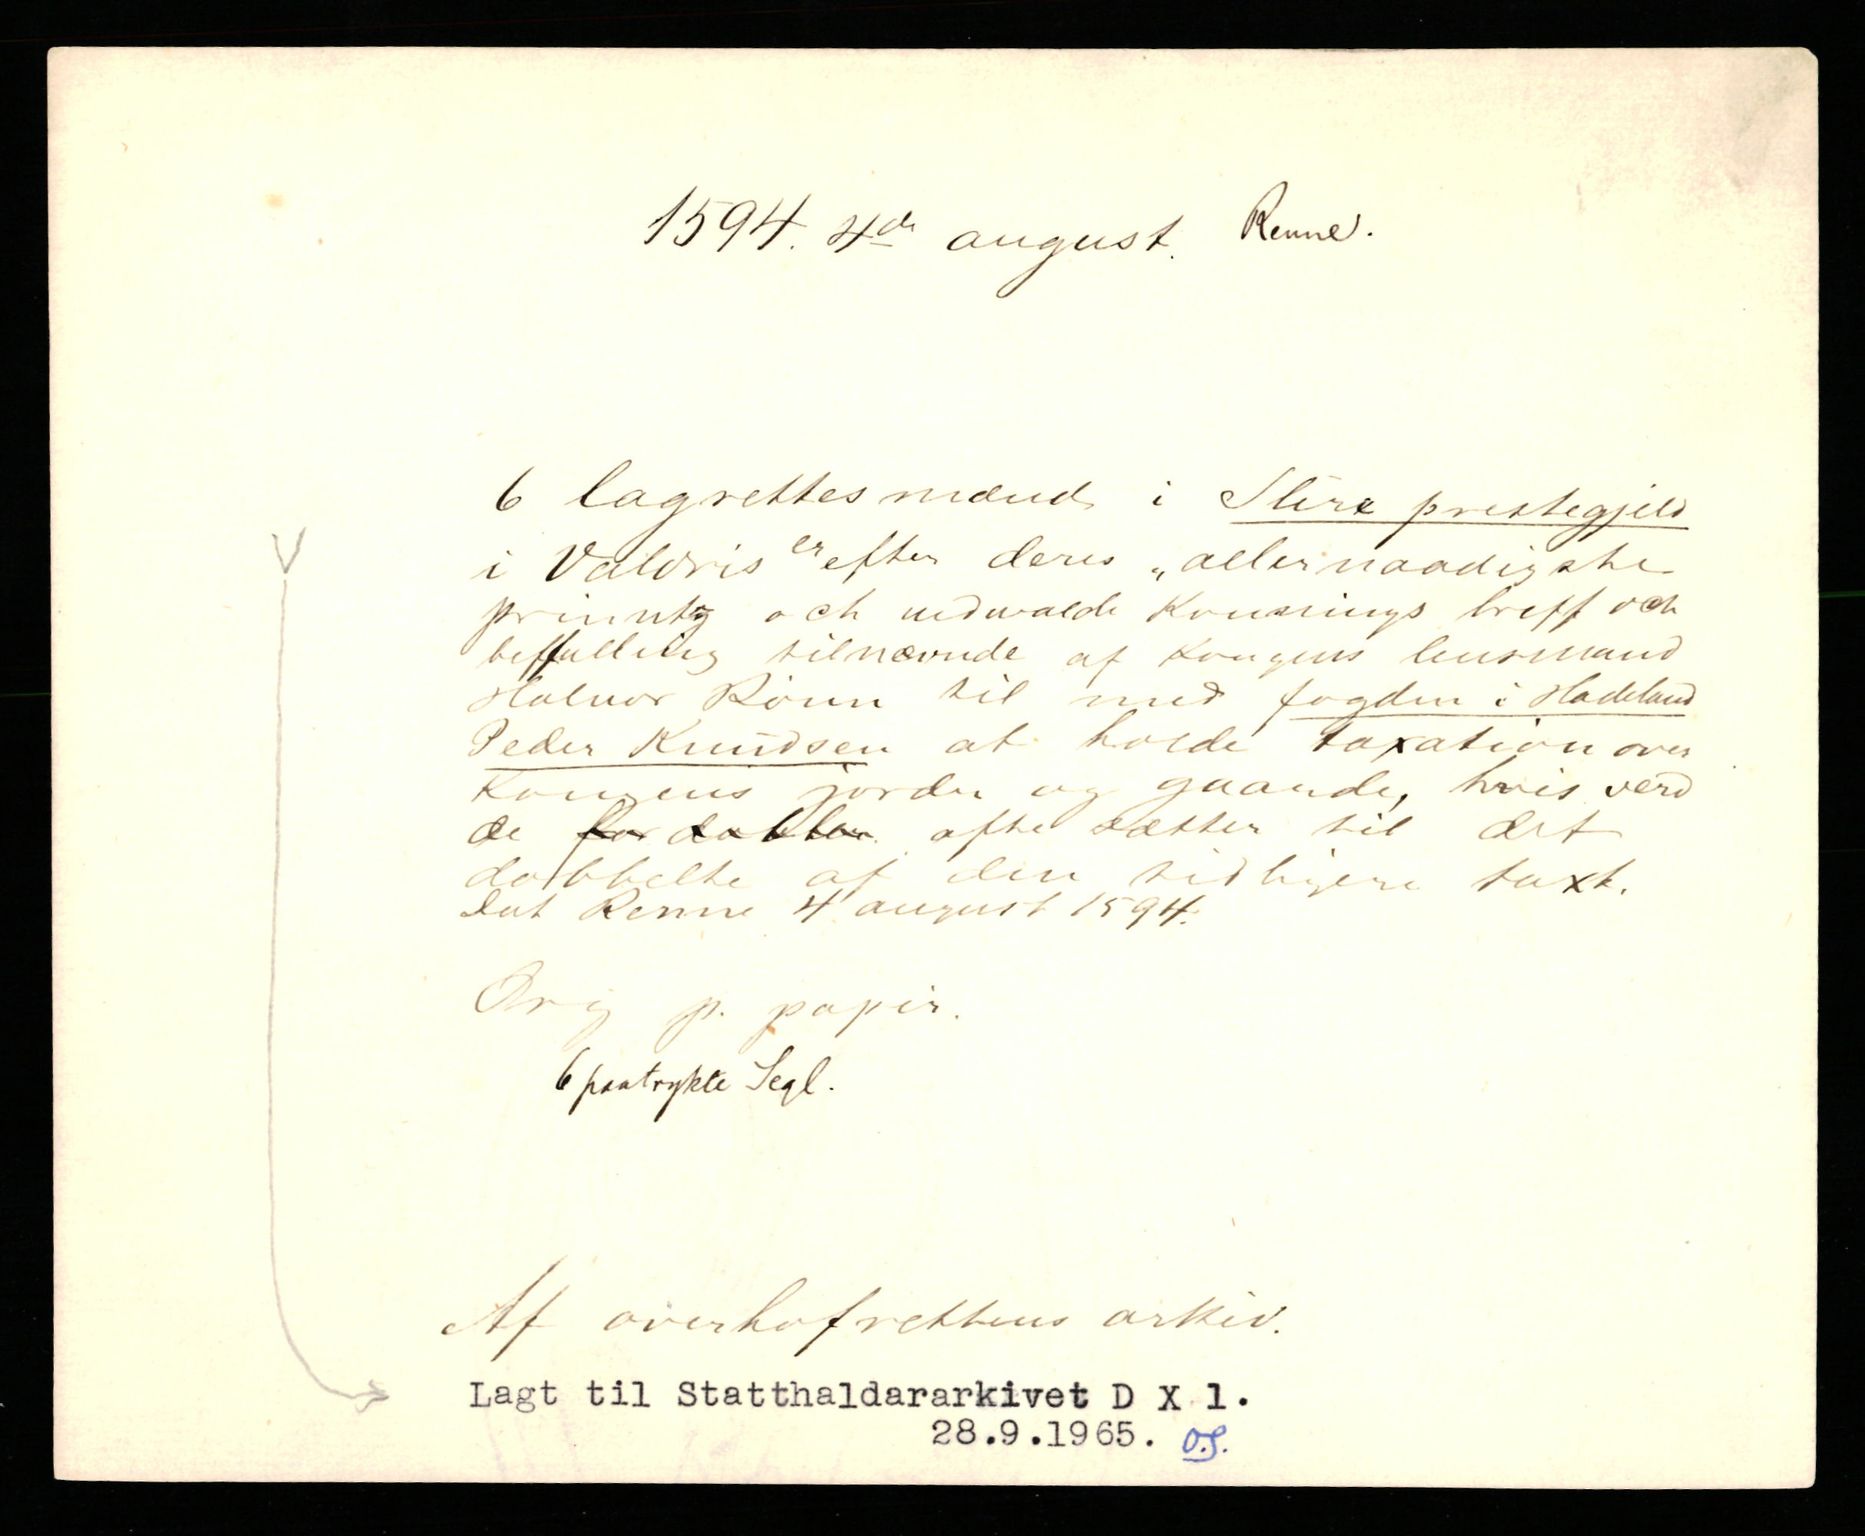 1594. 4de august. Renne.
6 lagrettesmænd i Slire prestegjeld
i Valdris er efter deres „allernaadigste
prinntz och udwalde Konnings breff och
beffalling tilnævnde af kongens lensmand
Halvor Rönn til med fogden i Hadeland
Peder Knudsen at holde taxation over
kongens jorder og gaarde, hvis verd
de for dobler ofte sætter til det
dobbelte af den tidligere taxt.
Dat Renne 4 august 1594.
Orig p. papir.
6 paatrykte Segl.
Af overhofrettens arkiv.
Lagt til Statthaldararkivet D X 1.
28.9.1965. O.S.